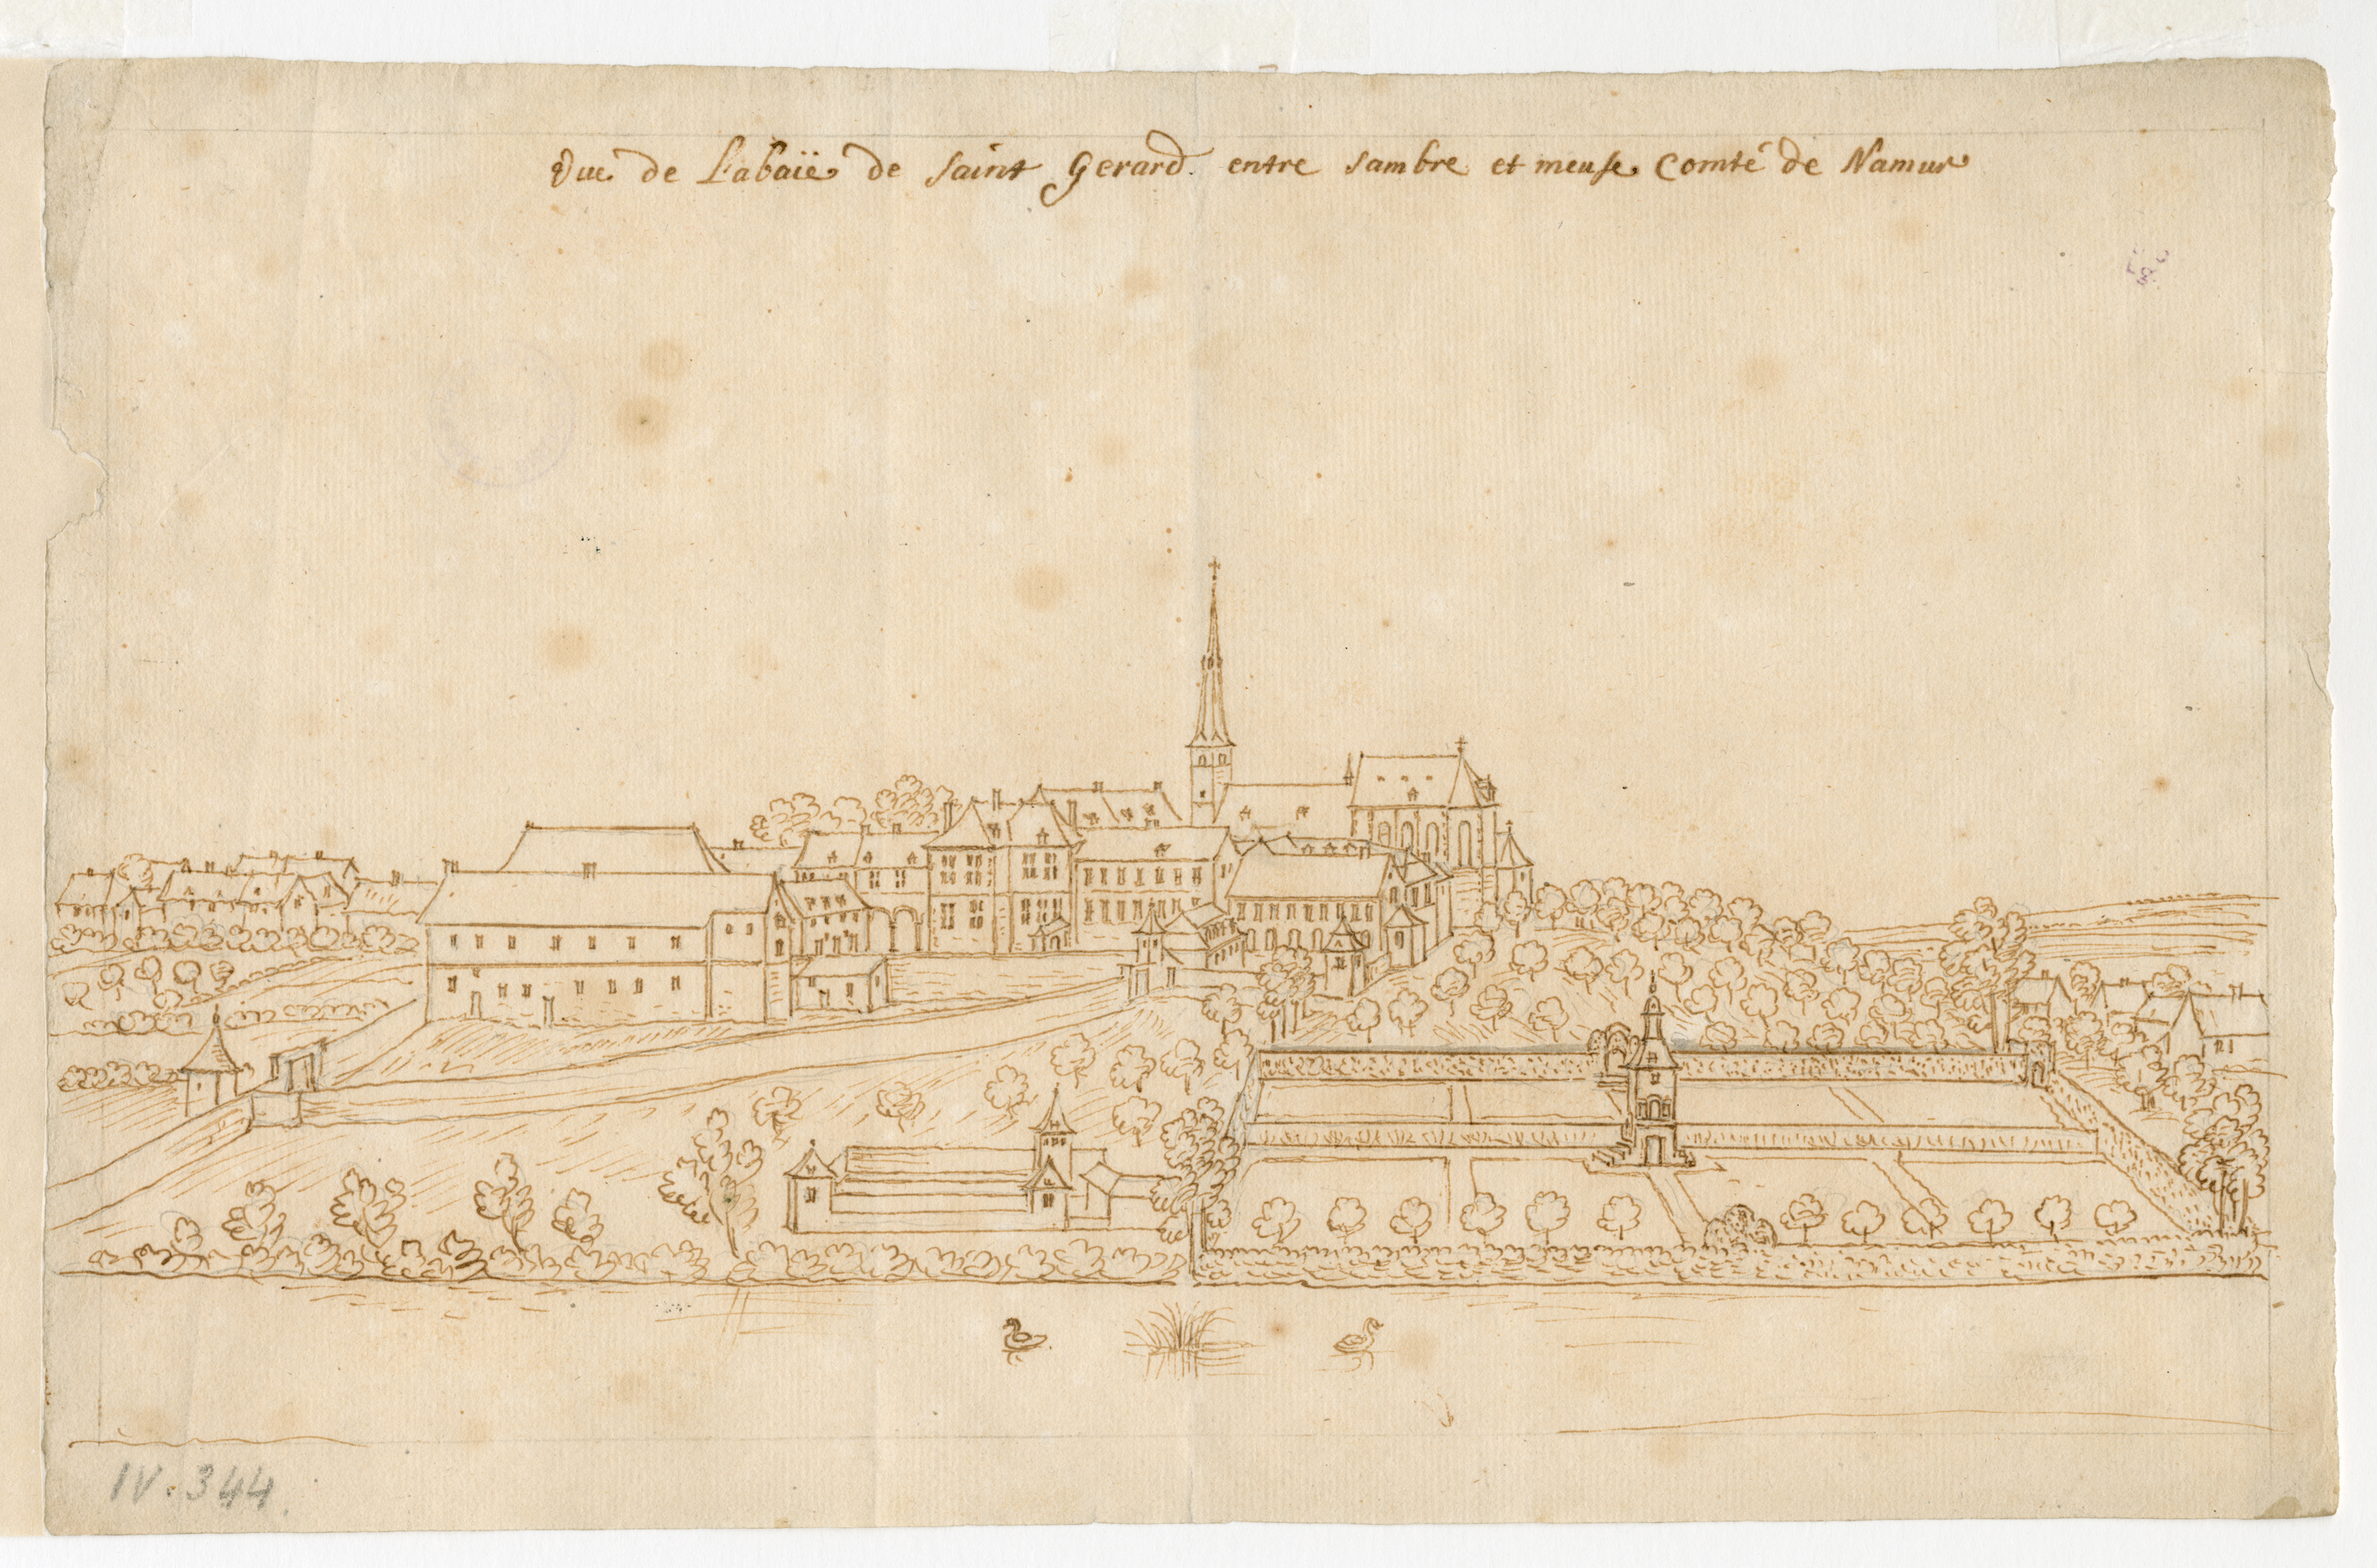 Vue de L'abaïe de saint Gerard entre sambre et meuse Comté de Namur
IV. 344